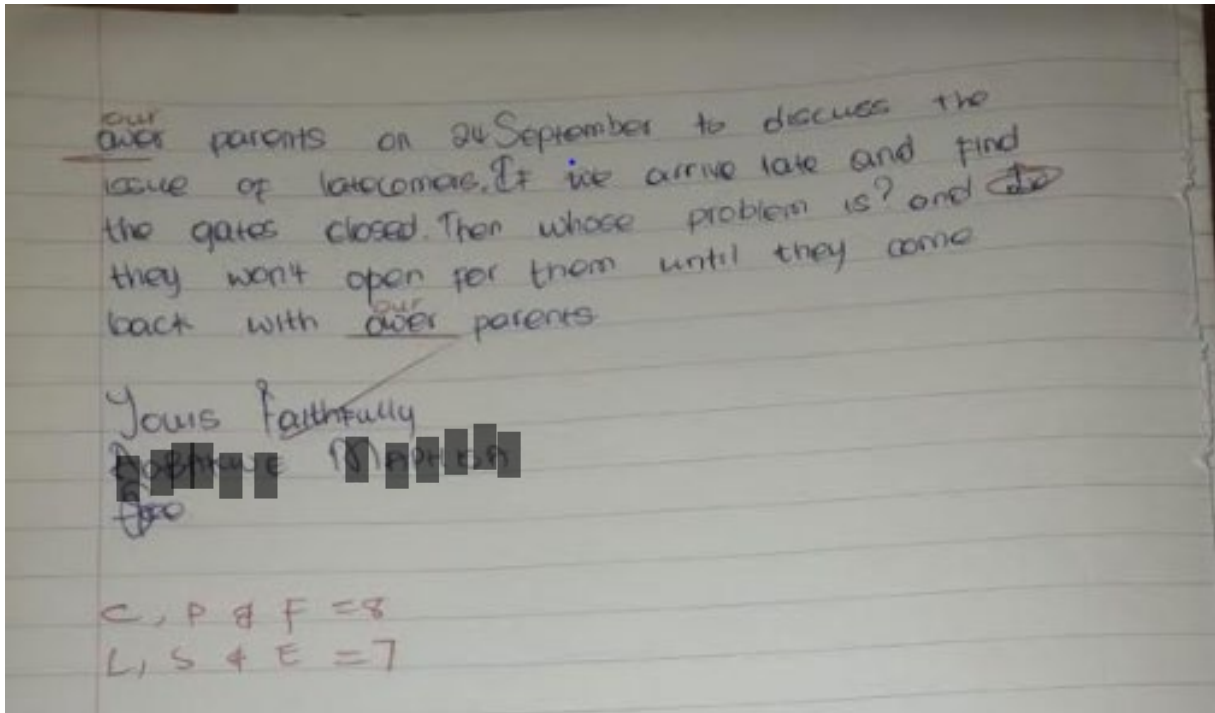 our
ower parents on 24 September to discuss the
issue of latecomers. If we arrive late and find
the gates closed. Then whose problem is? and
they won't open for them until they come
our
back with ower parents
Yours Faithfully
C, P & F = 8
L, S & E = 7